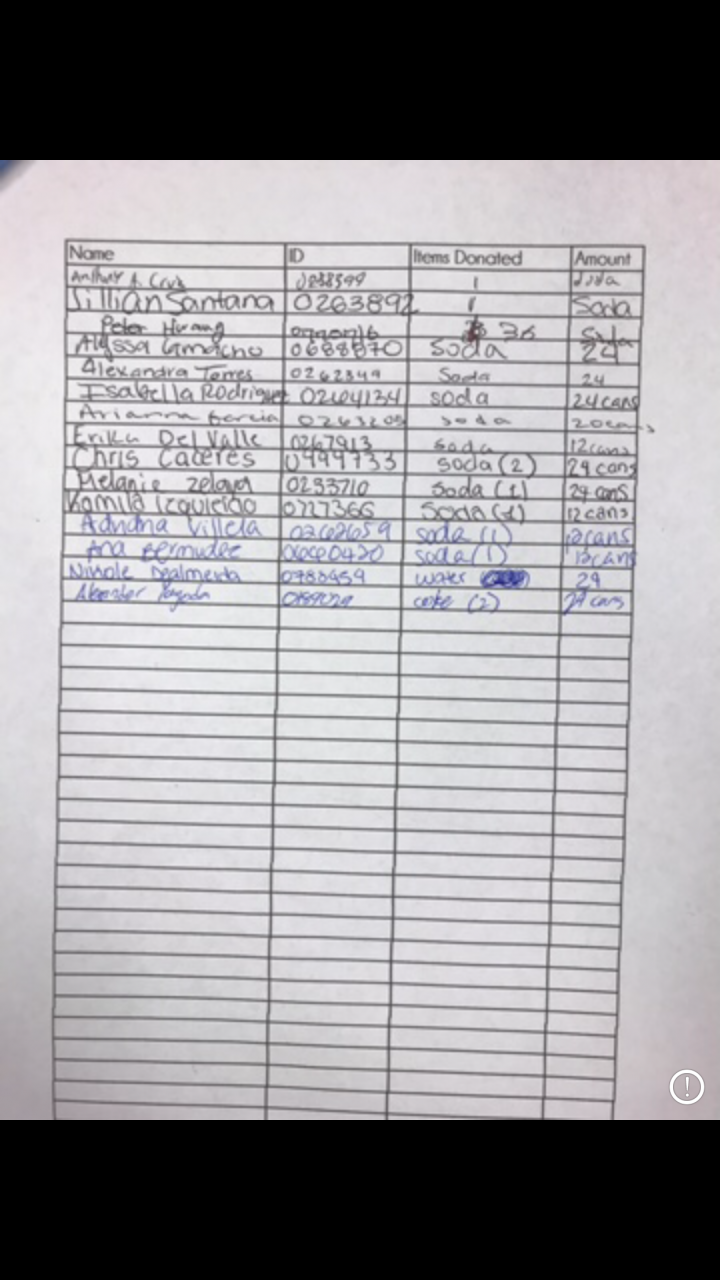 Name ID Items Donated Amount
Anthony A Cruz 0838399 1 soda
Jillian Santana 0263892 1 Soda
Peter Huang 36 Soda
Alyssa Camacho 0688870 soda 24
Alexandra Torres 0262349 Soda 24
Isabella Rodriguez 0264134 soda 24 cans
Arianna Garcia 0263205 soda 20 cans
Erika Del Valle 0267913 soda 12 cans
Chris Caceres 0999733 soda (2) 24 cans
Melanie Zelaya 0233710 soda (1) 24 cans
Kamila Izquierdo 0727366 soda (1) 12 cans
Adriana Villela 0262659 soda (1) 12 cans
Ana Bermudez 0660420 soda (1) 12 cans
Nikole Dealmeida 0788459 water 24
Alexander coke (2) 24 cans